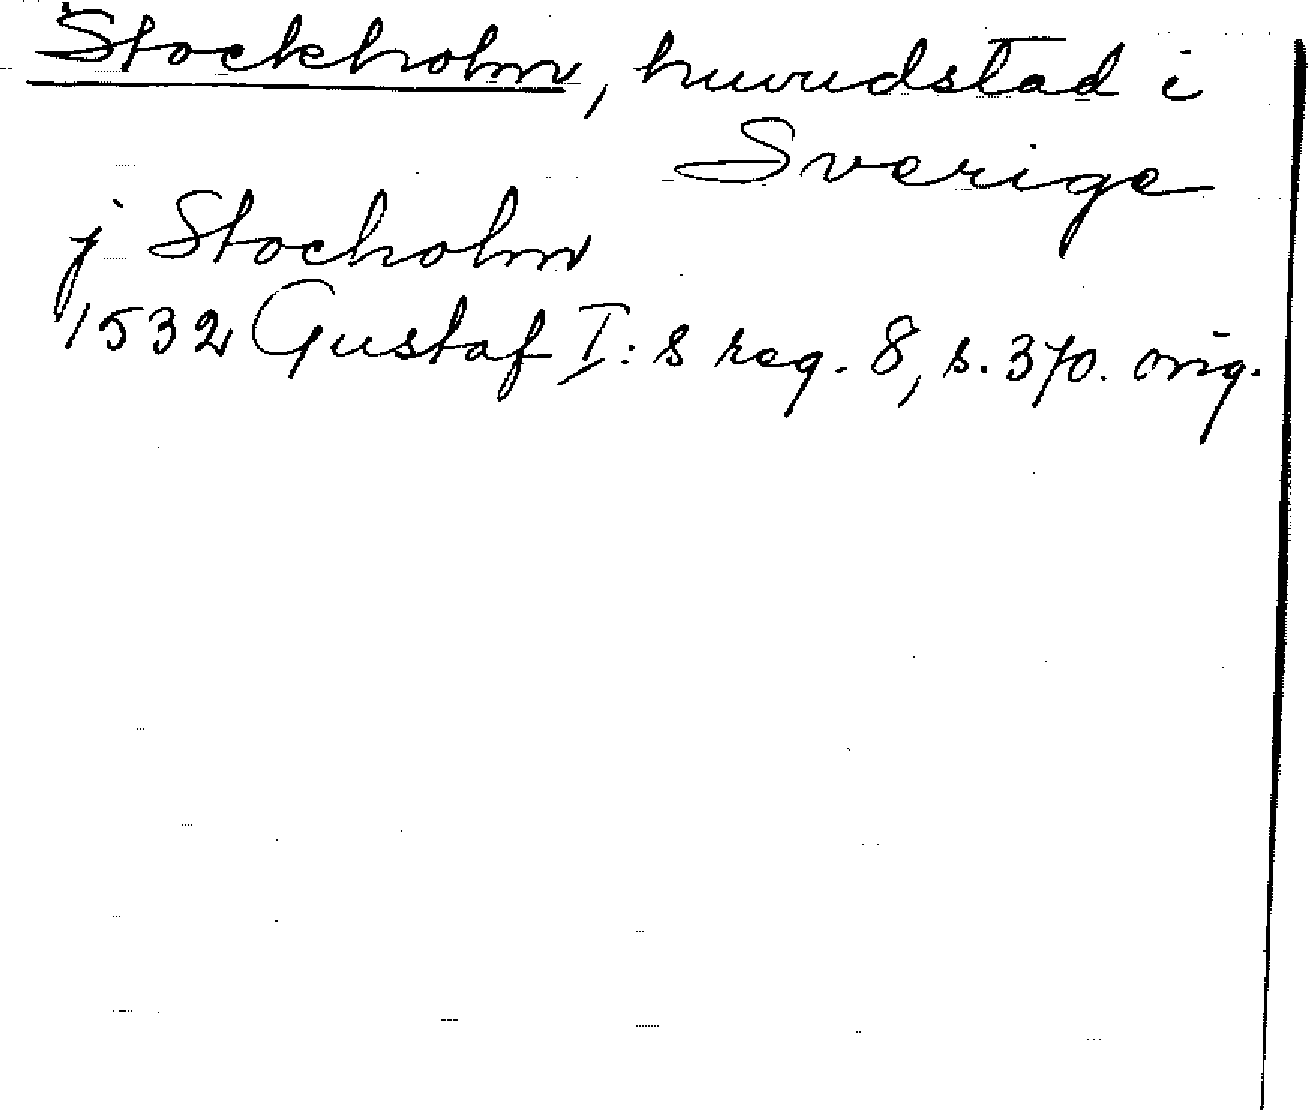 Stockholm, huvudstad i
Sverige
j Stocholm
1532 Gustaf I:s reg. 8, s. 370. orig.